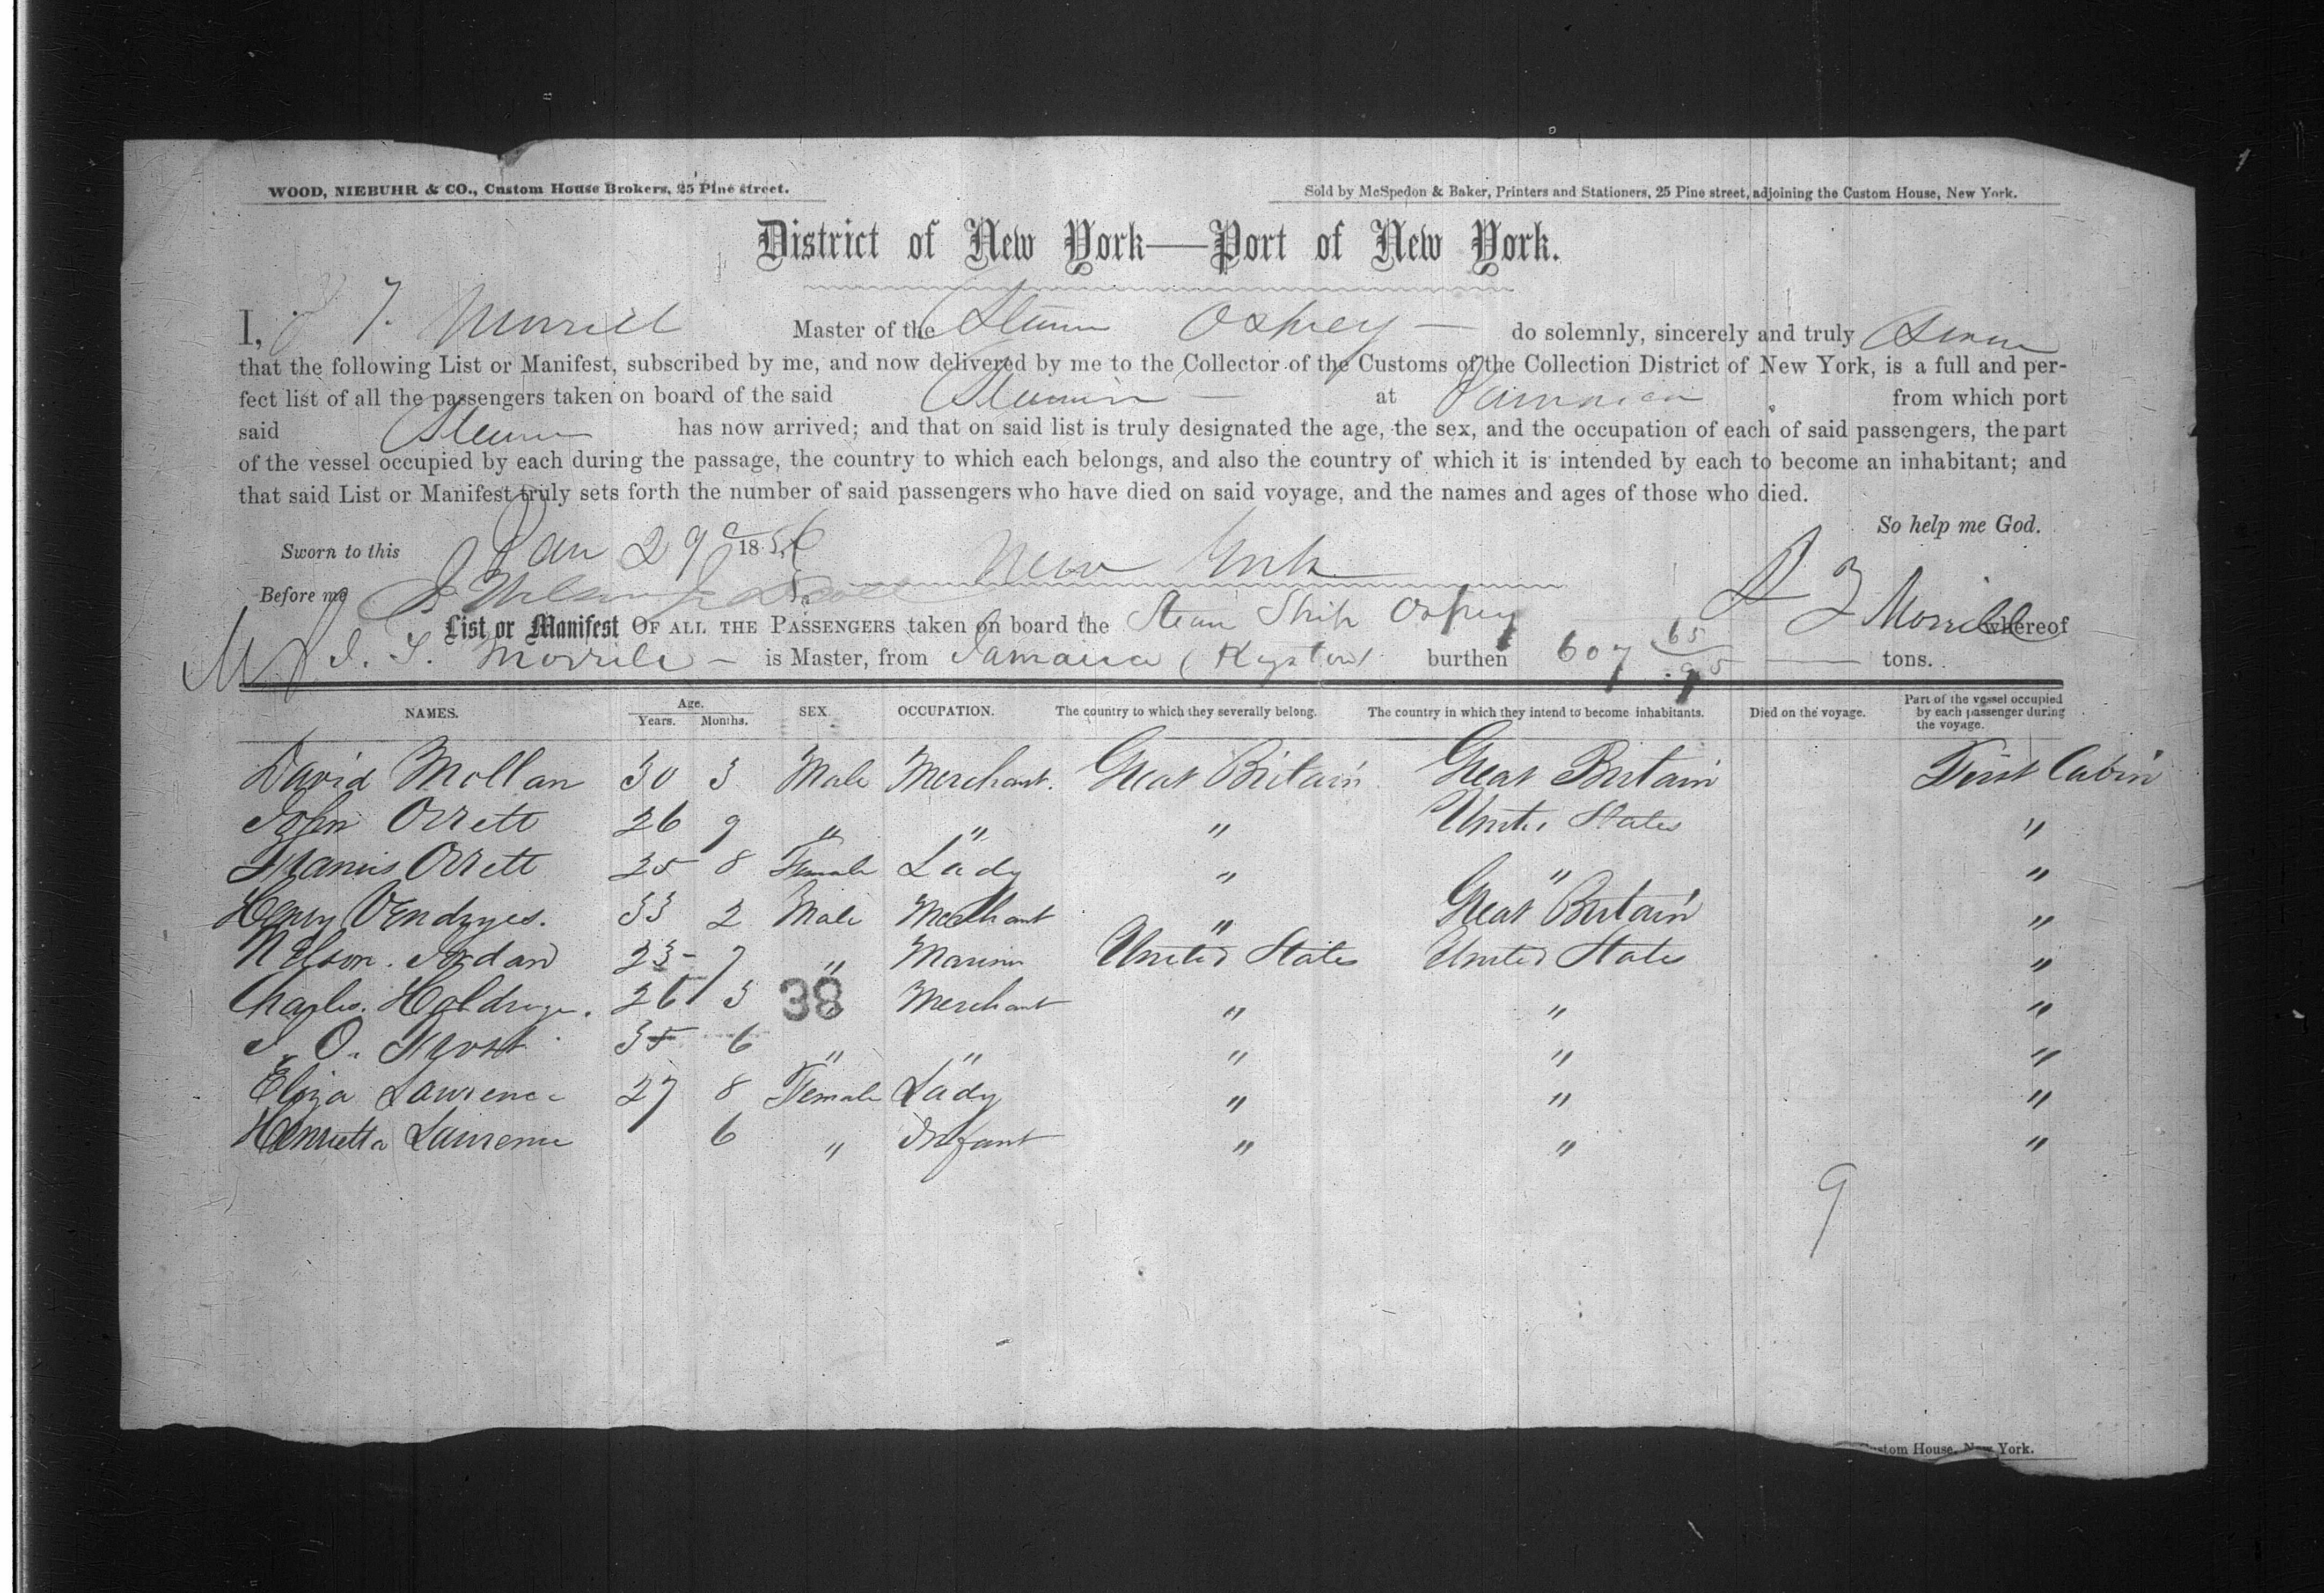 WOOD, NIEBUHR & CO., Custom House Brokers, 25 Pine street.
Sold by McSpedon & Baker, Printers and Stationers, 25 Pine street, adjoining the Custom House, New York.
District of New York—Port of New York.
I, J T. Morrill Master of the Steamer Osprey — do solemnly, sincerely and truly Swear
that the following List or Manifest, subscribed by me, and now delivered by me to the Collector of the Customs of the Collection District of New York, is a full and per-
fect list of all the passengers taken on board of the said Steamer — at Jamaica from which port
said Steamer has now arrived; and that on said list is truly designated the age, the sex, and the occupation of each of said passengers, the part
of the vessel occupied by each during the passage, the country to which each belongs, and also the country of which it is intended by each to become an inhabitant; and
that said List or Manifest truly sets forth the number of said passengers who have died on said voyage, and the names and ages of those who died.
So help me God.
Sworn to this Jan 29 1856 New York
Before me J T Morrill
List or Manifest OF ALL THE PASSENGERS taken on board the Steam Ship Osprey whereof
J. T. Morrill — is Master, from Jamaica (Kingston) burthen 607 65/95 tons.
NAMES. Age. Years. Months. SEX. OCCUPATION. The country to which they severally belong. The country in which they intend to become inhabitants. Died on the voyage. Part of the vessel occupied by each passenger during the voyage.
David Mollan 30 3 Male Merchant. Great Britain Great Britain First Cabin
John Orrett 26 9 " " " United States "
Francis Orrett 25 8 Female Lady " " "
Henry Vendryes. 33 2 Male Merchant " Great Britain "
Nelson. Jordan 23 7 " Mariner United States United States "
Charles. Holdrege. 26 3 38 Merchant " " "
J. O. 35 6 " " " " "
Eliza Lawrence 27 8 Female Lady " " "
Henrietta Lawrence 6 " Infant " " "
9
Custom House, New York.